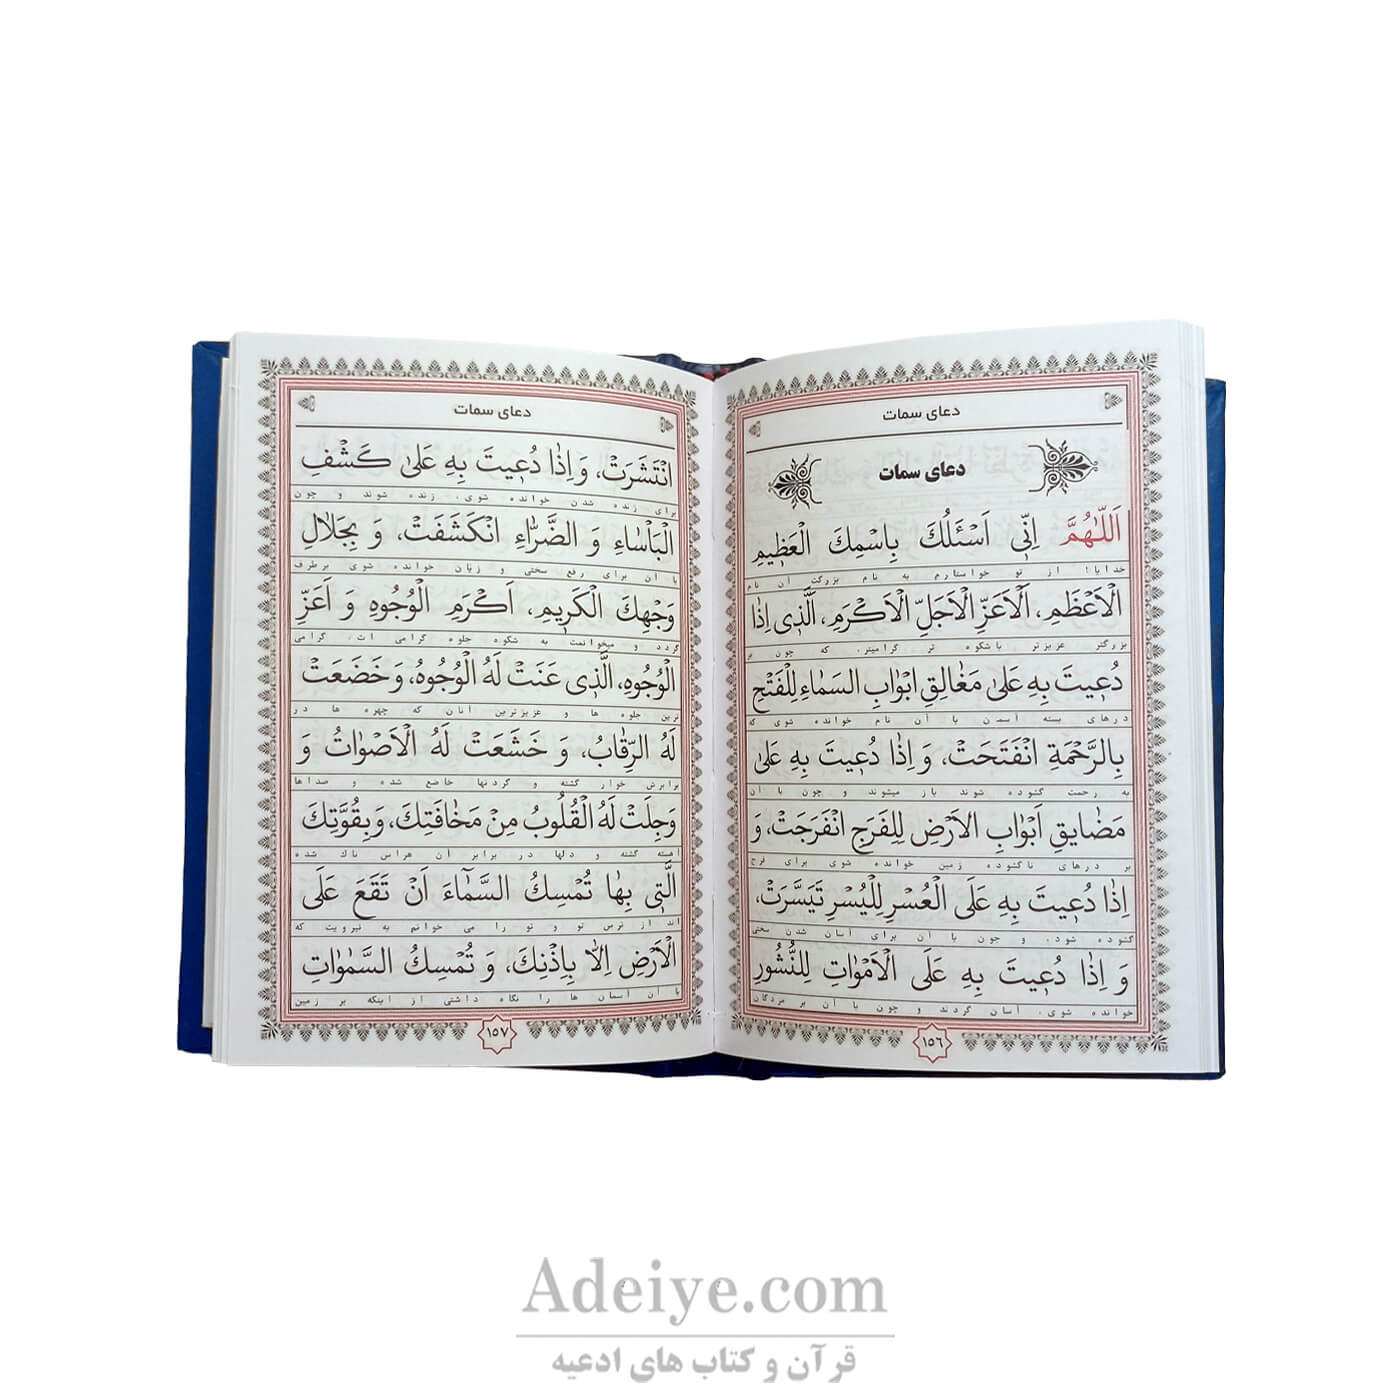 دعای سمات
دعای سمات
اَللّٰهُمَّ اِنّٖی اَسْئَلُكَ بِاسْمِكَ الْعَظٖیمِ
خدایا! از تو خواستارم به نام بزرگت آن نام
الْاَعْظَمِ، اَلْاَعَزِّ الْاَجَلِّ الْاَكْرَمِ، اَلَّذٖی اِذٰا
بزرگتر عزیزتر باشکوه تر گرامیتر، که چون بر
دُعٖیتَ بِهِ عَلیٰ مَغٰالِقِ اَبْوٰابِ السَمٰاءِ لِلْفَتْحِ
درهای بسته آسمان با آن نام خوانده شوی که
بِالرَّحْمَةِ انْفَتَحَتْ، وَ اِذٰا دُعٖیتَ بِهِ عَلیٰ
به رحمت گشوده شوند باز میشوند و چون با آن
مَضٰایِقِ اَبْوٰابِ الْاَرْضِ لِلْفَرَجِ انْفَرَجَتْ، وَ
بر درهای ناگشوده زمین خوانده شوی برای فرج
اِذٰا دُعٖیتَ بِهِ عَلَی الْعُسْرِ لِلْیُسْرِ تَیَسَّرَتْ،
گشوده شود، و چون با آن برای آسان شدن سختی
وَ اِذٰا دُعٖیتَ بِهِ عَلَی الْاَمْوٰاتِ لِلنُّشُورِ
خوانده شوی، آسان گردند و چون با آن بر مردگان
۱۵۶
دعای سمات
انْتَشَرَتْ، وَ اِذٰا دُعٖیتَ بِهِ عَلیٰ كَشْفِ
برای زنده شدن خوانده شوی، زنده شوند و چون
الْبَاْسٰاءِ وَ الضَّرّٰاءِ انْكَشَفَتْ، وَ بِجَلٰالِ
با آن برای رفع سختی و زیان خوانده شوی برطرف
وَجْهِكَ الْكَرٖیمِ، اَكْرَمِ الْوُجُوهِ وَ اَعَزِّ
گردد و میخوانمت به شکوه جلوه گرامی ات، گرامی
الْوُجُوهِ، الَّذٖی عَنَتْ لَهُ الْوُجُوهُ، وَ خَضَعَتْ
ترین جلوه ها و عزیزترین آنان که چهره ها در
لَهُ الرِّقٰابُ، وَ خَشَعَتْ لَهُ الْاَصْوٰاتُ وَ
برابرش خوار گشته و گردنها خاضع شده و صداها
وَجِلَتْ لَهُ الْقُلُوبُ مِنْ مَخٰافَتِكَ، وَ بِقُوَّتِكَ
آهسته گشته و دلها در برابر آن هراس ناك شده
الَّتٖی بِهٰا تُمْسِكُ السَّمٰٓاءَ اَنْ تَقَعَ عَلَی
اند از ترس تو و تو را می خوانم به نیرویت که
الْاَرْضِ اِلّٰا بِاِذْنِكَ، وَ تُمْسِكُ السَّمٰوٰاتِ
با آن آسمان ها را نگاه داشتی از اینکه بر زمین
۱۵۷
Adeiye.com
قرآن و کتاب های ادعیه